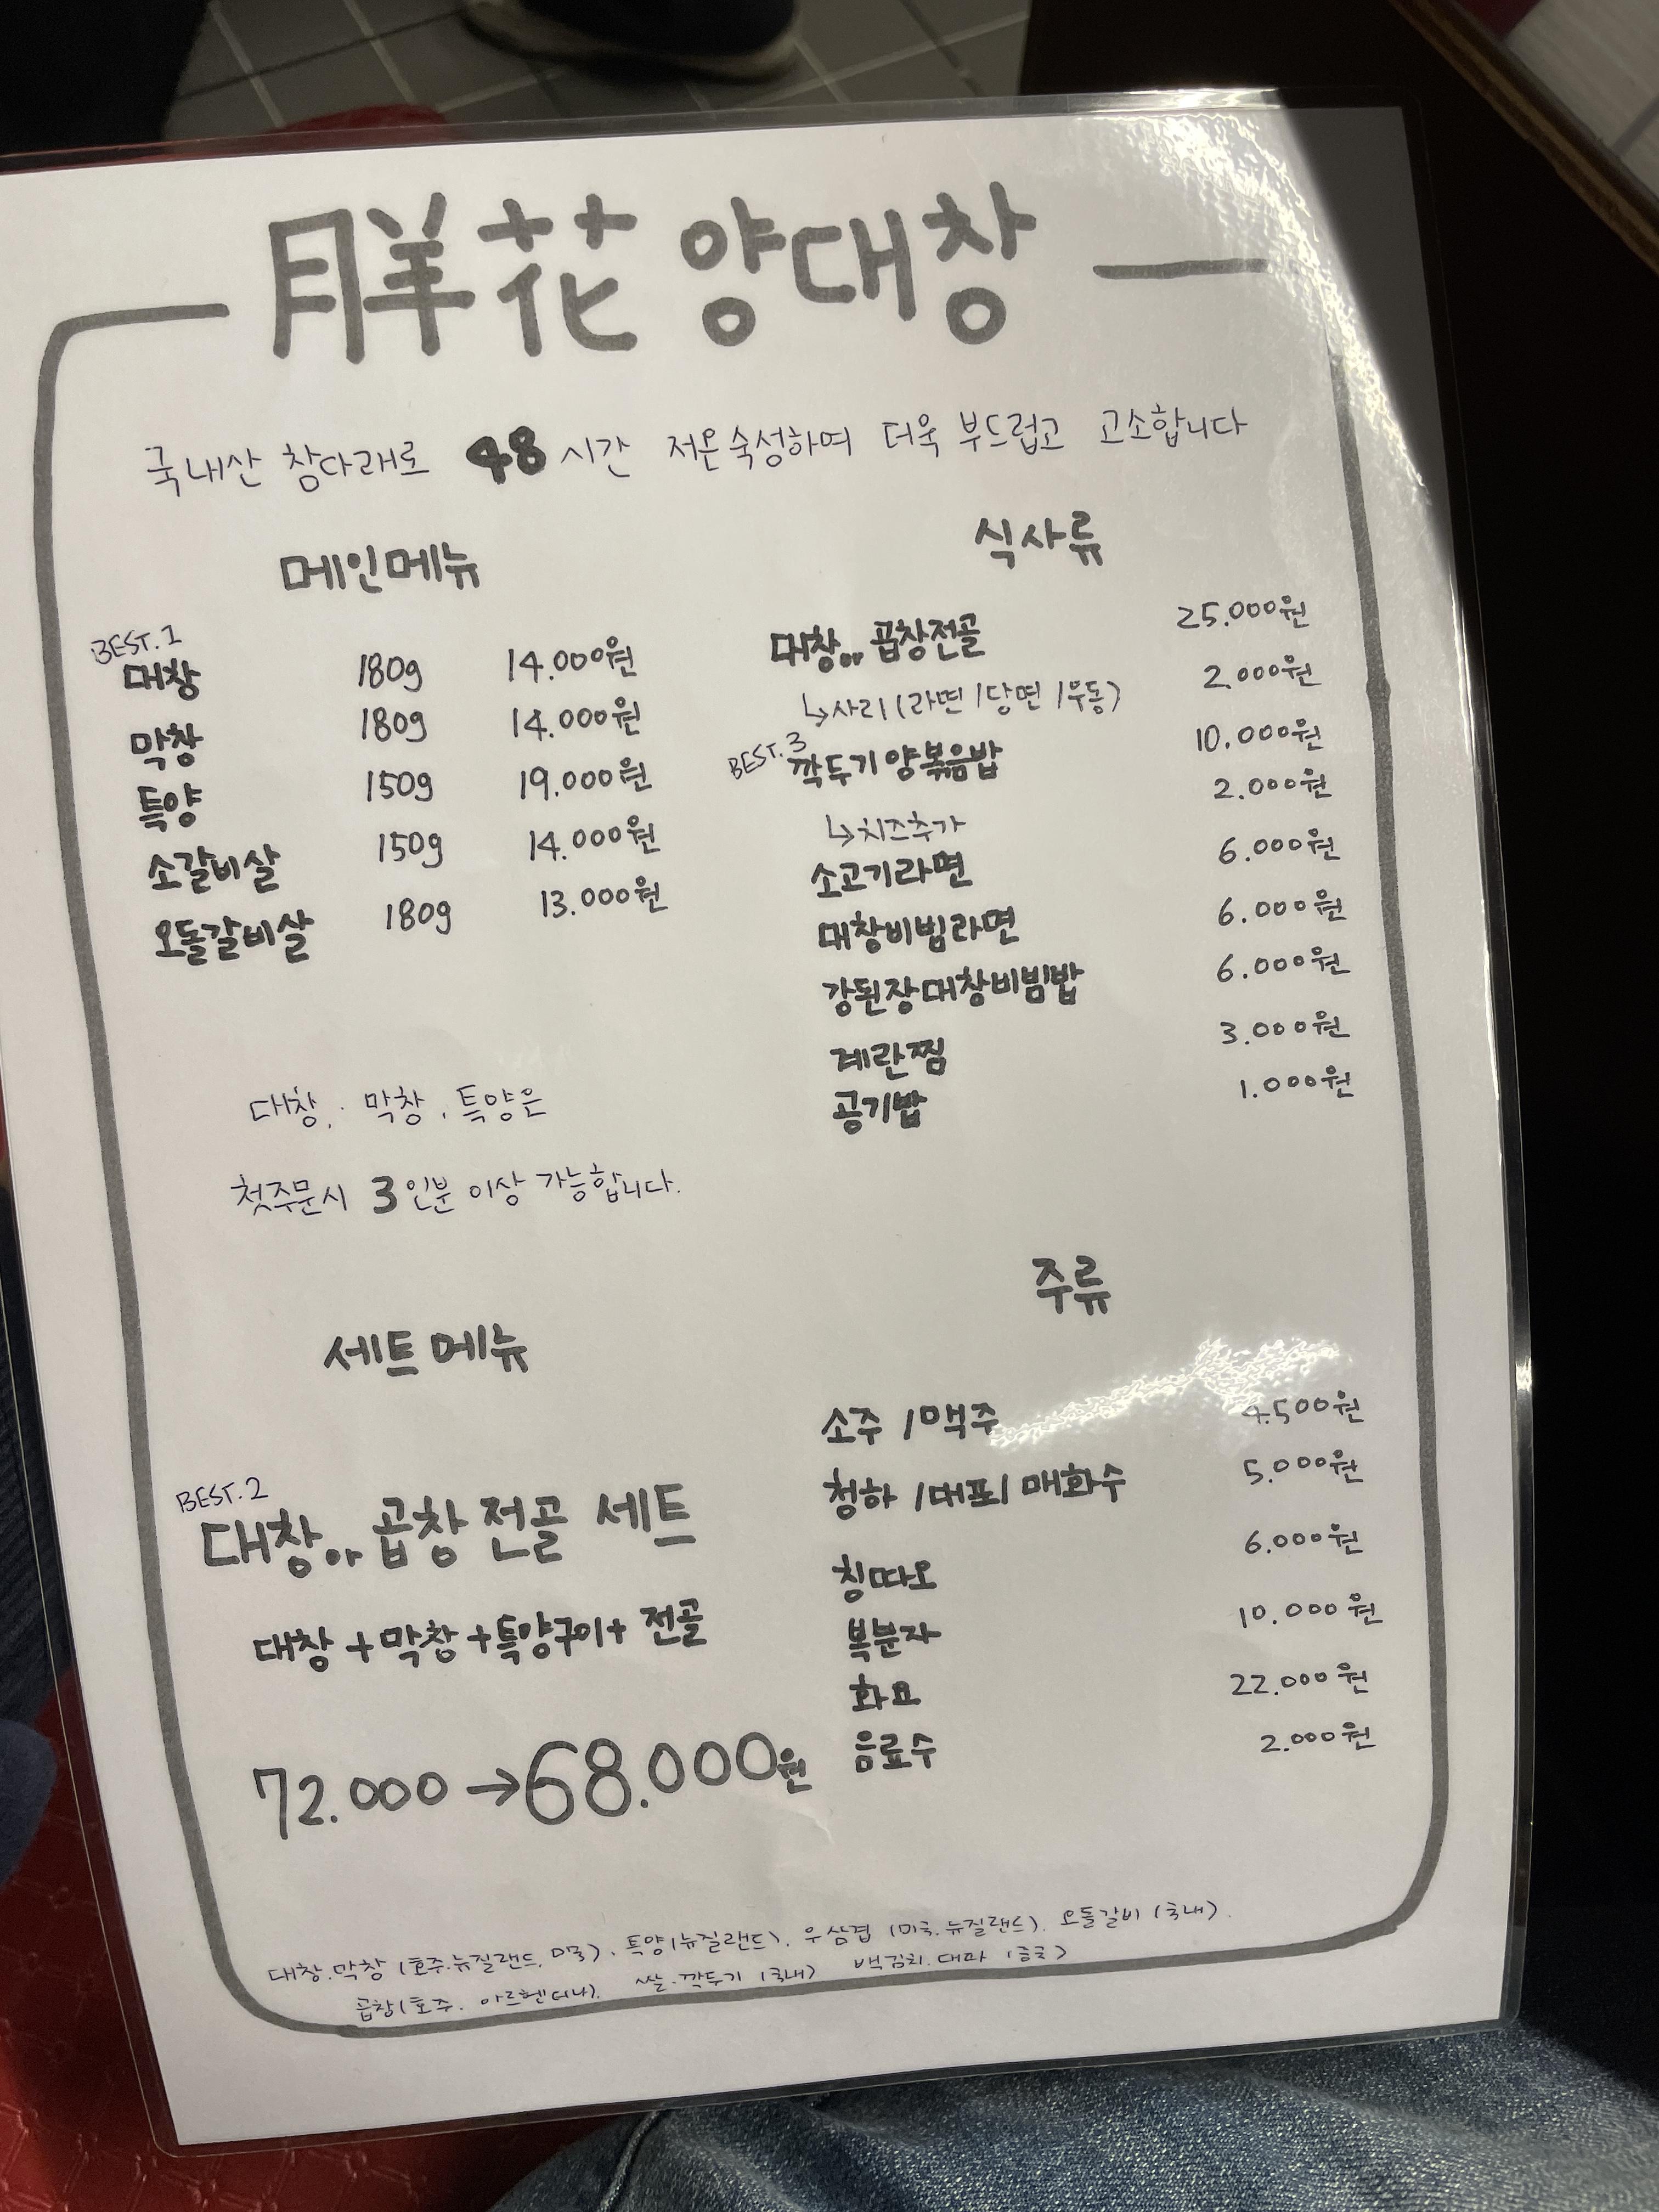 胖花 양대창
국내산 참다래로 48시간 저온숙성하여 더욱 부드럽고 고소합니다
메인메뉴
BEST.1
대창 180g 14.000원
막창 180g 14.000원
특양 150g 19.000원
소갈비살 150g 14.000원
오돌갈비살 180g 13.000원
대창. 막창. 특양은
첫주문시 3인분 이상 가능합니다.
세트메뉴
BEST.2
대창or곱창전골 세트
대창+막창+특양구이+전골
72.000→68.000원
식사류
대창or곱창전골 25.000원
↳사리(라면/당면/우동) 2.000원
BEST.3
깍두기양볶음밥 10.000원
↳치즈추가 2.000원
소고기라면 6.000원
대창비빔라면 6.000원
강된장대창비빔밥 6.000원
계란찜 3.000원
공기밥 1.000원
주류
소주/맥주 4.500원
청하/대포/매화수 5.000원
칭따오 6.000원
복분자 10.000원
화요 22.000원
음료수 2.000원
대창.막창(호주.뉴질랜드.미국). 특양(뉴질랜드). 우삼겹(미국.뉴질랜드). 오돌갈비(국내).
곱창(호주. 아르헨티나). 쌀.깍두기(국내) 백김치.대파(중국)